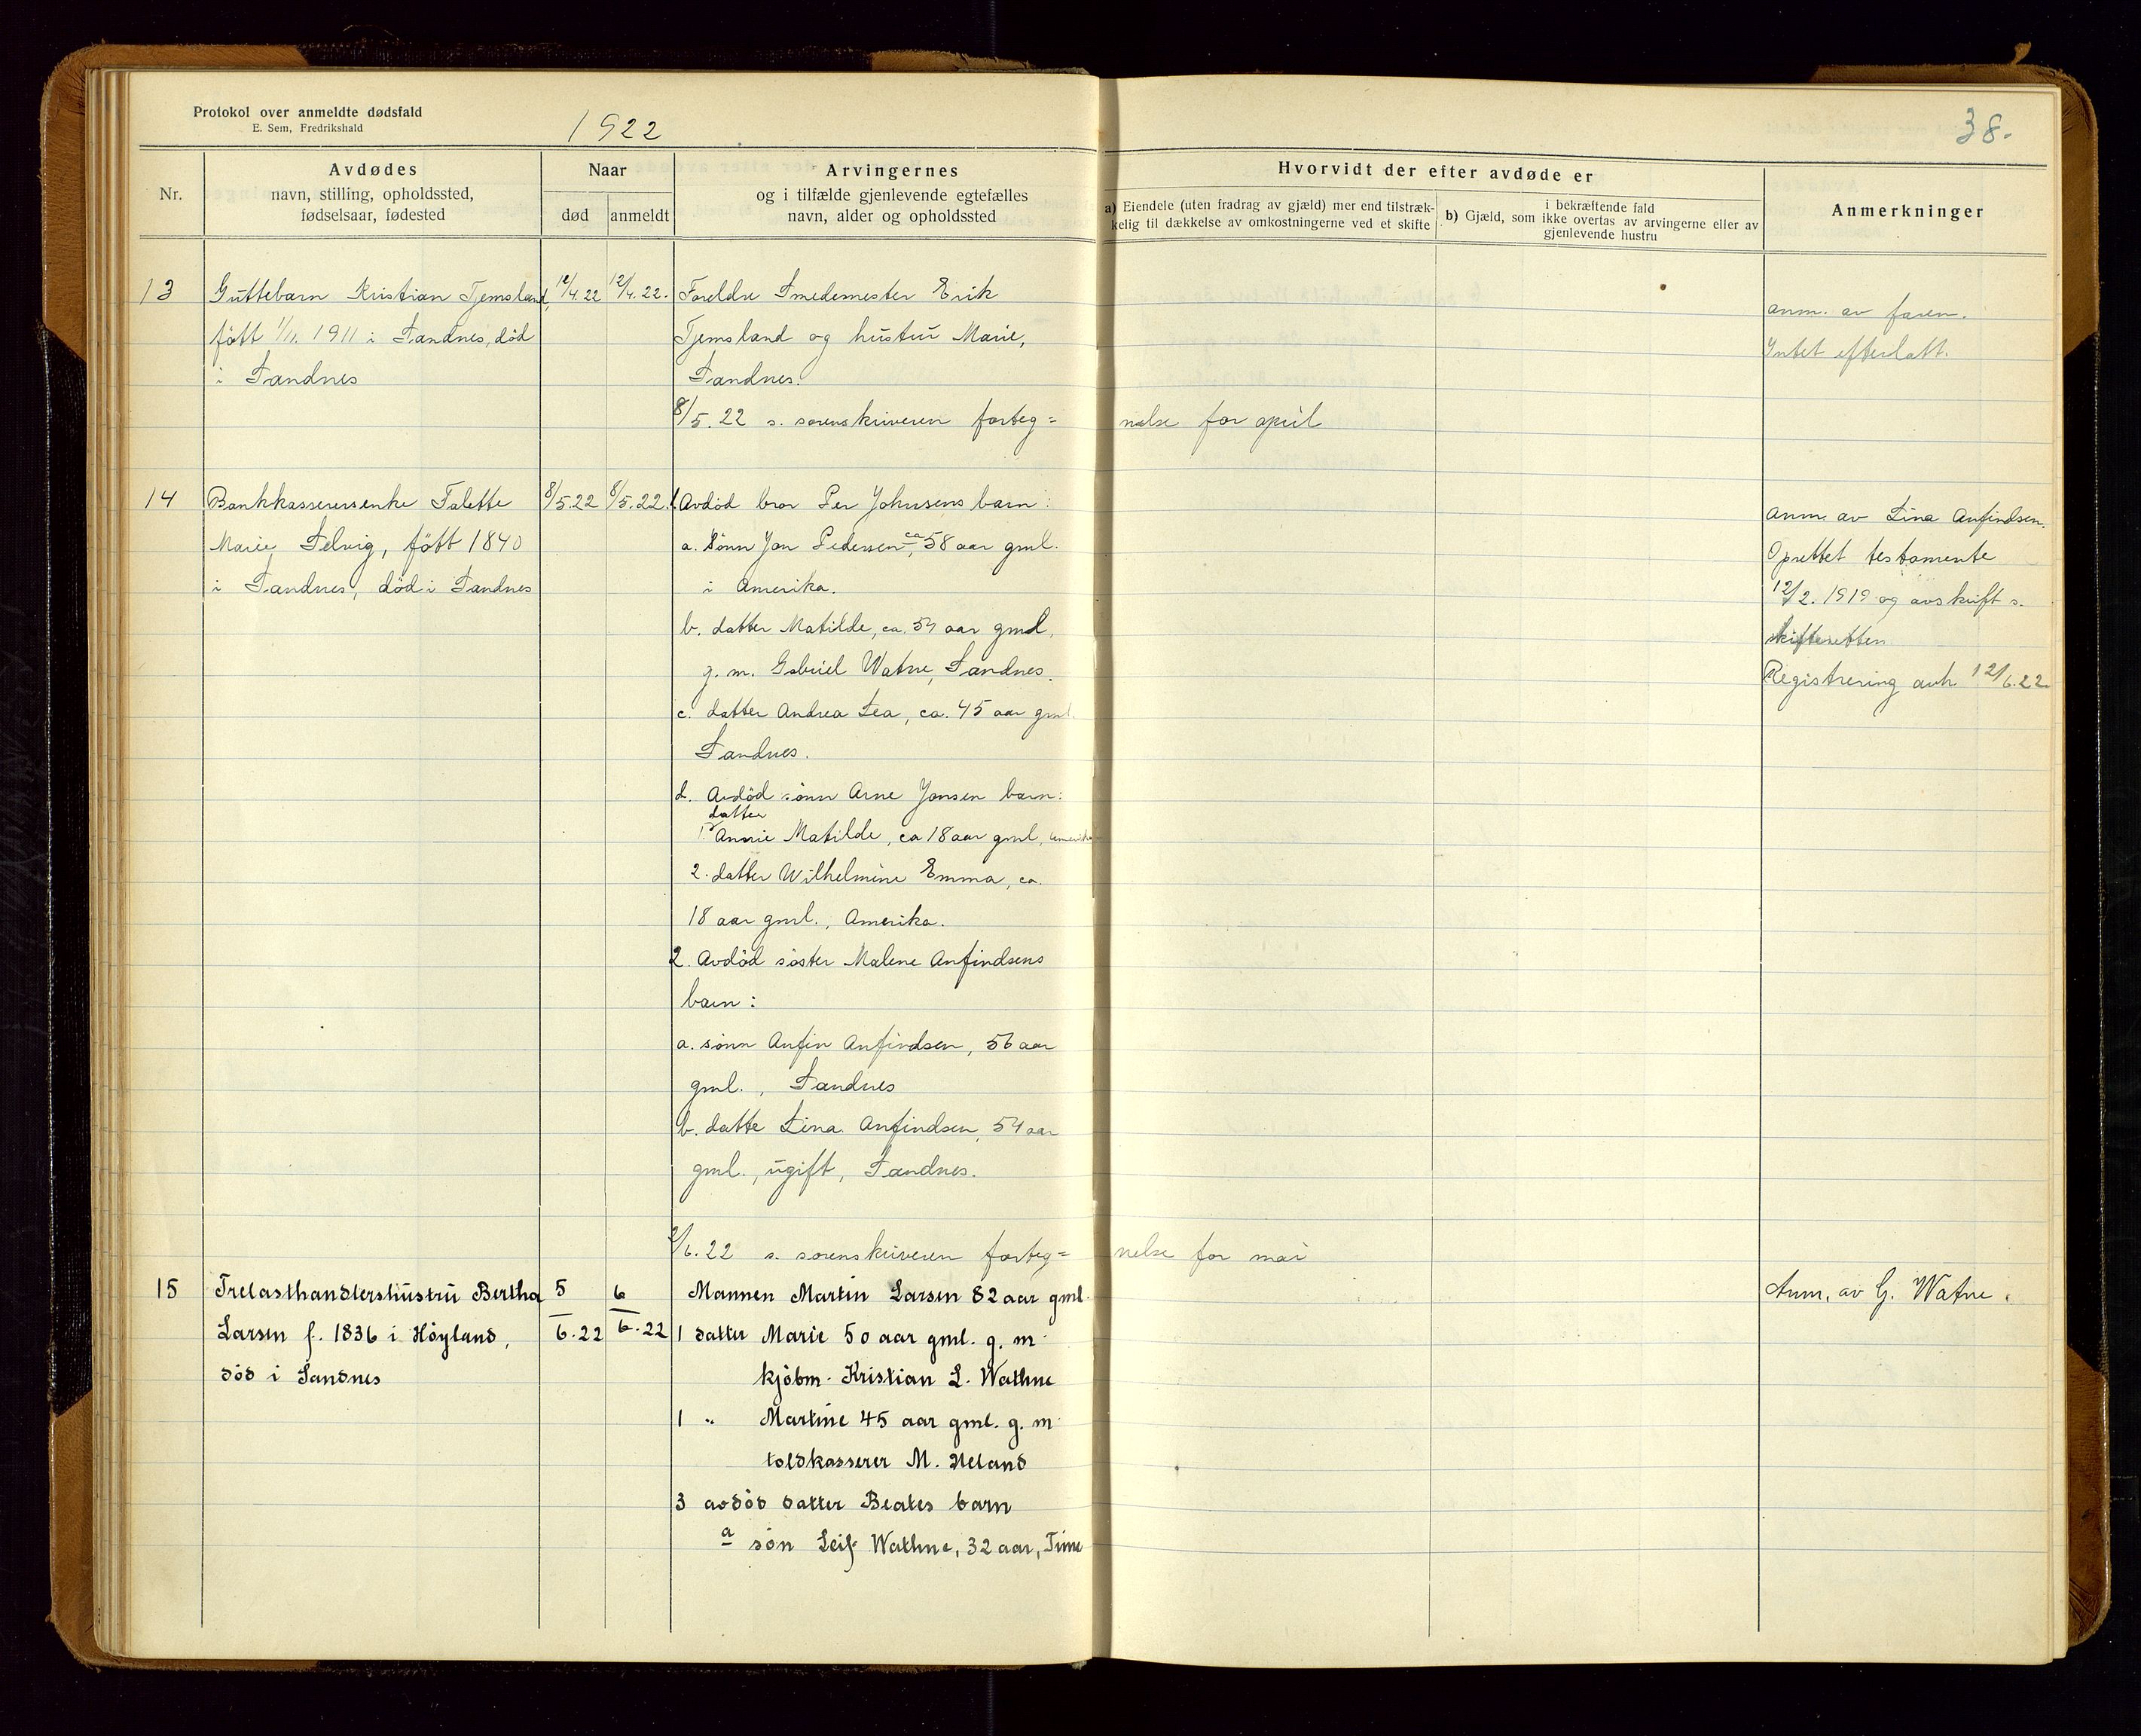 Protokol over anmeldte dødsfald
E. Sem, Fredrikshald
1922
38.
Nr.
Avdødes
navn, stilling, opholdssted,
fødselsaar, fødested
Naar
død
anmeldt
Arvingernes
og i tilfælde gjenlevende egtefælles
navn, alder og opholdssted
Hvorvidt der efter avdøde er
a) Eiendele (uten fradrag av gjæld) mer end tilstræk-
kelig til dækkelse av omkostningerne ved et skifte
b) Gjæld, som i bekræftende fald
ikke overtas av arvingerne eller av
gjenlevende hustru
Anmerkninger
13
Guttebarn Kristian Tjemsland,
født 1/11. 1911 i Sandnes, död
i Sandnes
12/4. 22
12/4. 22.
Foreldre Smedemester Erik
Tjemsland og hustru Marie,
Sandnes.
8/5. 22 s. sorenskriveren forteg=
nelse for april
anm. av faren.
Intet efterlatt.
14
Bankkasserersenke Talette
Marie Selvig, född 1840
i Sandnes, död i Sandnes
8/5.22
8/5.22.
1. Avdöd bror Per Johnsens barn:
a. Sönn Jon Pedersen, ca 58 aar gml.
i Amerika.
b. datter Matilde, ca. 54 aar gml,
g. m. Gabriel Watne, Sandnes.
c. datter Andrea Lea, ca. 45 aar gml.
Sandnes.
d. Avdöd sönn Arne Jonsen barn:
datter
1. Annie Matilde, ca 18 aar gml, Amerika
2. datter Wilhelmine Emma, ca.
18 aar gml., Amerika.
2. Avdöd söster Malene Anfindsens
barn:
a. sönn Anfin Anfindsen, 56 aar
gml., Sandnes
b. datte Lina Anfindsen, 54 aar
gml., ugift, Sandnes.
anm. av Lina Anfindsen.
Oprettet testamente
12/2. 1919 og avskrift s.
skifteretten
Registrering avh. 12/6.22.
/6. 22 s. sorenskriveren forteg=
nelse for mai
15
Trelasthandlershustru Bertha
Larsen f. 1836 i Höyland,
död i Sandnes
5
6.22
6
6.22
Mannen Martin Larsen 82 aar gml.
1 datter Marie 50 aar gml. g. m.
kjöbm. Kristian L. Wathne
1 " Martine 45 aar gml. g. m
toldkasserer M. Ueland
3 avdöd datter Beates barn
a sön Leif Wathne, 32 aar, Time
Anm. av G. Watne.